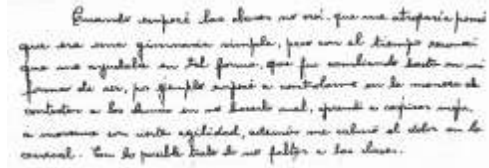 Cuando empecé las clases no creí que me atraparía, pensé
que era una gimnasia simple, pero con el tiempo
que me ayudaba en tal forma, que fui cambiando hasta en mi
forma de ser, por ejemplo empecé a controlarme en la manera de
contestar a los demás en no hacerlo mal, aprendí a respirar mejor,
a moverme con cierta agilidad, además me calmó el dolor en la
cervical. En lo posible trato de no faltar a las clases.